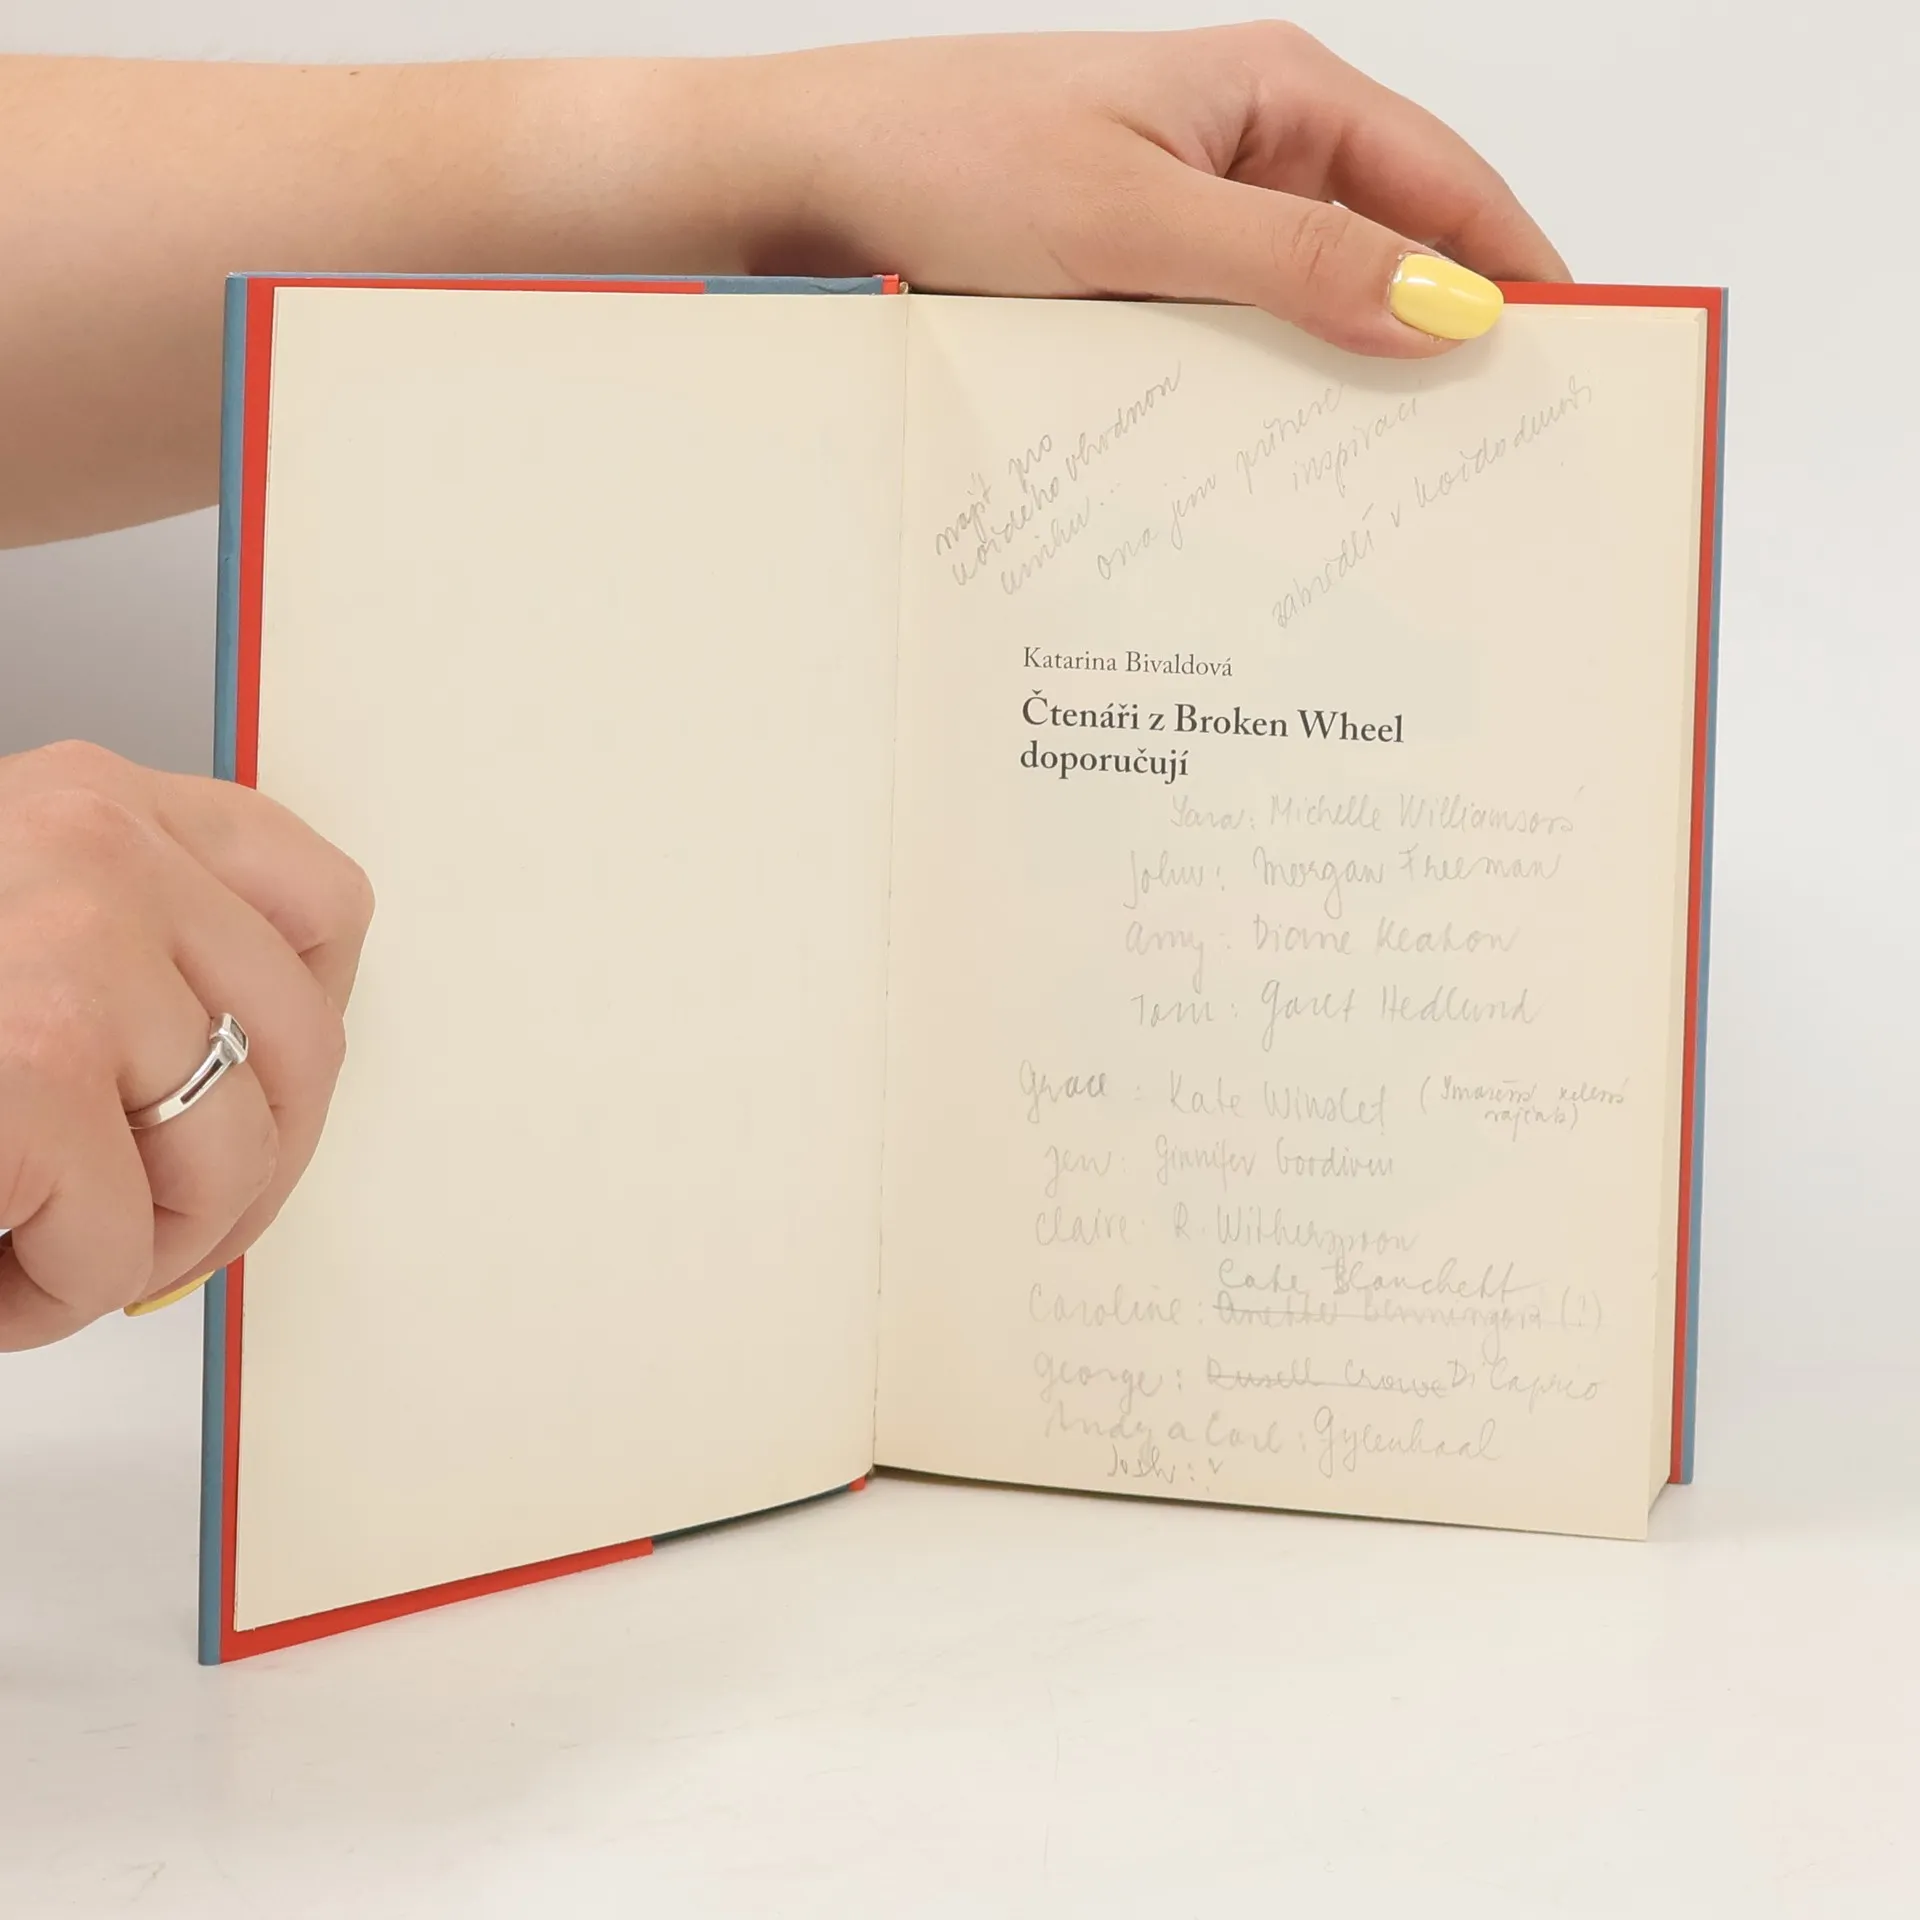 najít pro
každého vhodnou
knihu...
ona jim přinese
inspiraci
zabředlí v každodennosti
Katarina Bivaldová
Čtenáři z Broken Wheel
doporučují
Sara: Michelle Williamsová
John: Morgan Freeman
Amy: Diane Keaton
Tom: Garet Hedlund
Grace: Kate Winslet (Smažená zelená
rajčata)
Jen: Ginnifer Goodwin
Claire: R. Witherspoon
Cate Blanchett
Caroline: Anette Benningová (!)
George: Rusell Crowe Di Caprio
Andy a Carl: Gylenhaal
Josh: ?